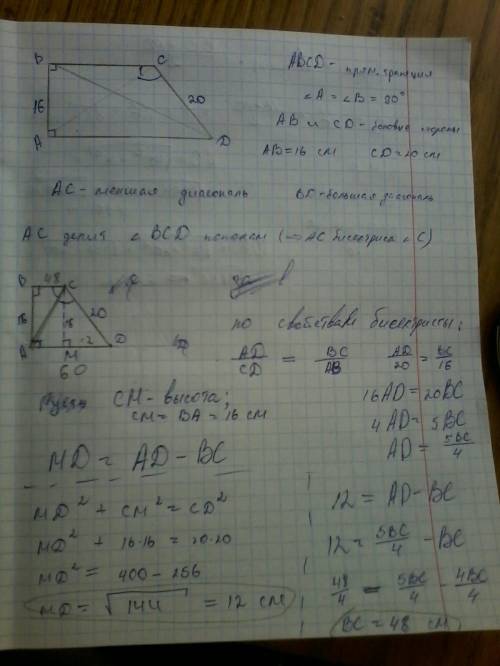 B C
16 20
A D
ABCD - прям. трапеция
∠A = ∠B = 90°
AB и CD - боковые стороны
AB = 16 см CD = 20 см
AC - меншая диагональ
большая диагональ
AC делия ∠ BCD пополам (⇒ AC биссктриса ∠ C)
B 48 C
16 16 20
A M 12 D
60
по свойстваве бисектриссы:
AD/CD = BC/AB AD/20 = BC/16
Пусть CM - высота;
CM = BA = 16 см
16AD = 20BC
4AD = 5BC
AD = 5BC/4
MD = AD - BC
MD² + CM² = CD²
MD² + 16·16 = 20·20
MD² = 400 - 256
MD = √144 = 12 см
12 = AD - BC
12 = 5BC/4 - BC
48/4 = 5BC/4 - 4BC/4
BC = 48 см